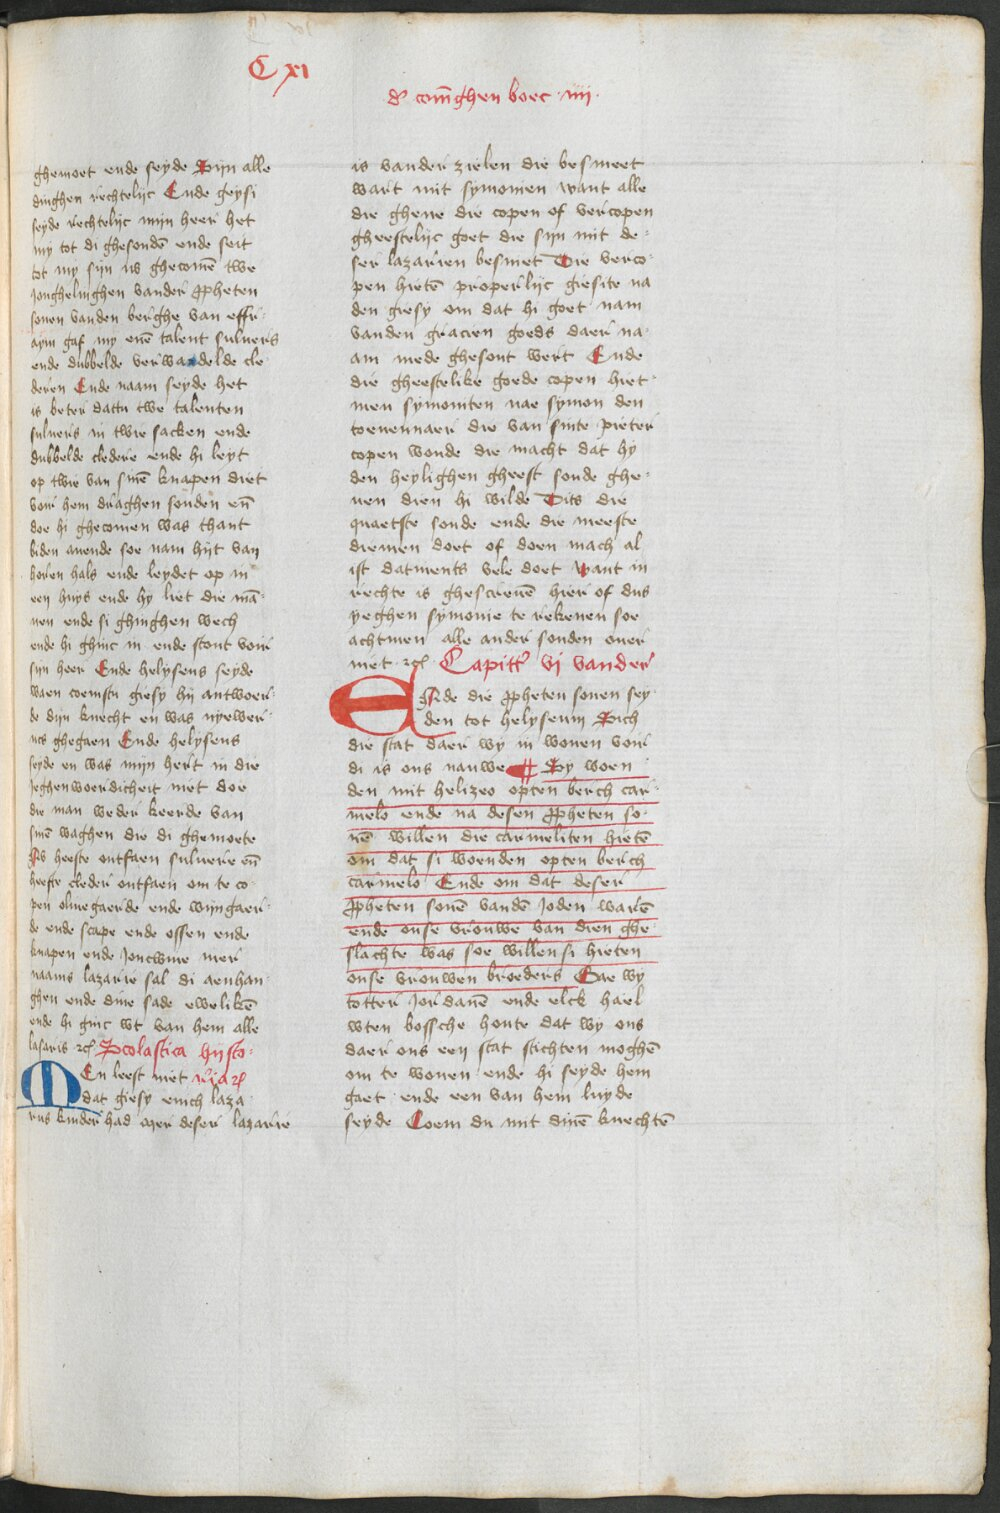 C xi
dʼ coīnghen boec · iiii ·
ghemoet ende seyde Sijn alle
dinghen rechtelijc Ende geysi
seyde rechtelijc mijn heer het
my tot di ghesondē ende seit
tot my sijn us ghecomē twe
jonghelinghen vander ꝓpheten
sonen vanden berghe van effr-
aym gaf my enē talent suluers
ende dubbelde verwandelde cle-
deren Ende naam seyde het
is beter dattu twe talenten
suluers in twie sacken ende
dubbelde cledere ende hi leyt
op twie van sinē knapen diet
voir hem draghen souden eñ
doe hi ghecomen was thant
biden auende soe nam hijt van
horen hals ende leydet op in
een huys ende hy liet die mā-
nen ende si ghinghen wech
ende hi ghinc in ende stont voir
sijn heer Ende helyseus seyde
waen coemstu giesy hij antwoer-
de dijn knecht en was nyewer-
ncs ghegaen Ende helyseus
seyde en was mijn hert in die
jeghenwoerdicheit niet doe
die man weder keerde van
sinē waghen die di ghemoete
Nv heeste ontfaen suluere eñ
heeste cleder ontfaen om te co-
pen olmegaerde ende wijngaer-
de ende scape ende ossen ende
knapen ende joncwiue mer
naams lazarie sal di aenhan-
ghen ende dine sade ewelikē
ende hi ginc wt van hem alle
lasaris ⁊cꝭ Scolastica hijsto-
MEn leest niet riaꝝ
dat giesy enich laza-
rus kinder had mer deser lazarie
is vander zielen die besmeet
wart mit symonien want alle
die ghene die copen of vercopen
gheestelijc goet die sijn mit de-
ser lazarien besmet Die verco-
pen hietē properlijc giesite na
den giesy om dat hi goet nam
vanden gracien goeds daer na-
am mede ghesont wert Ende
die gheestelike goede copen hiet-
men symoniten nae symon den
toeuennaer die van sinte pieter
copen woude die macht dat hy
den heylighen gheest soude ghe-
uen dien hi wilde Dits die
quaetste sonde ende die meeste
diemen doet of doen mach al
ist datments vele doet want in
rechte is ghescreuē hier of dus
yeghen symonie te rekenen soe
achtmen alle ander sonden ouer
niet ⁊cꝭ Capittʼ vi vander
ENde die ꝓpheten sonen sey-
den tot helyseum Sich
die stat daer wy in wonen voir
di is ons nauwe ¶ Sy woen-
den mit helizeo opten berch car-
melo ende na desen ꝓpheten so-
nē willen die carmeliten hietē
om dat si woenden opten berch
carmelo Ende om dat deser
ꝓpheten sonē vandē joden warē
ende onse vrouwe van dien ghe-
slachte was soe willen si hieten
onse vrouwen broeders Gae wy
totter jordanē ende elck hael
wten bossche houte dat wy ons
daer ons een stat stichten moghē
om te wonen ende hi seyde hem
gaet ende een van hem luyde
seyde Coem du mit dinē knechtē